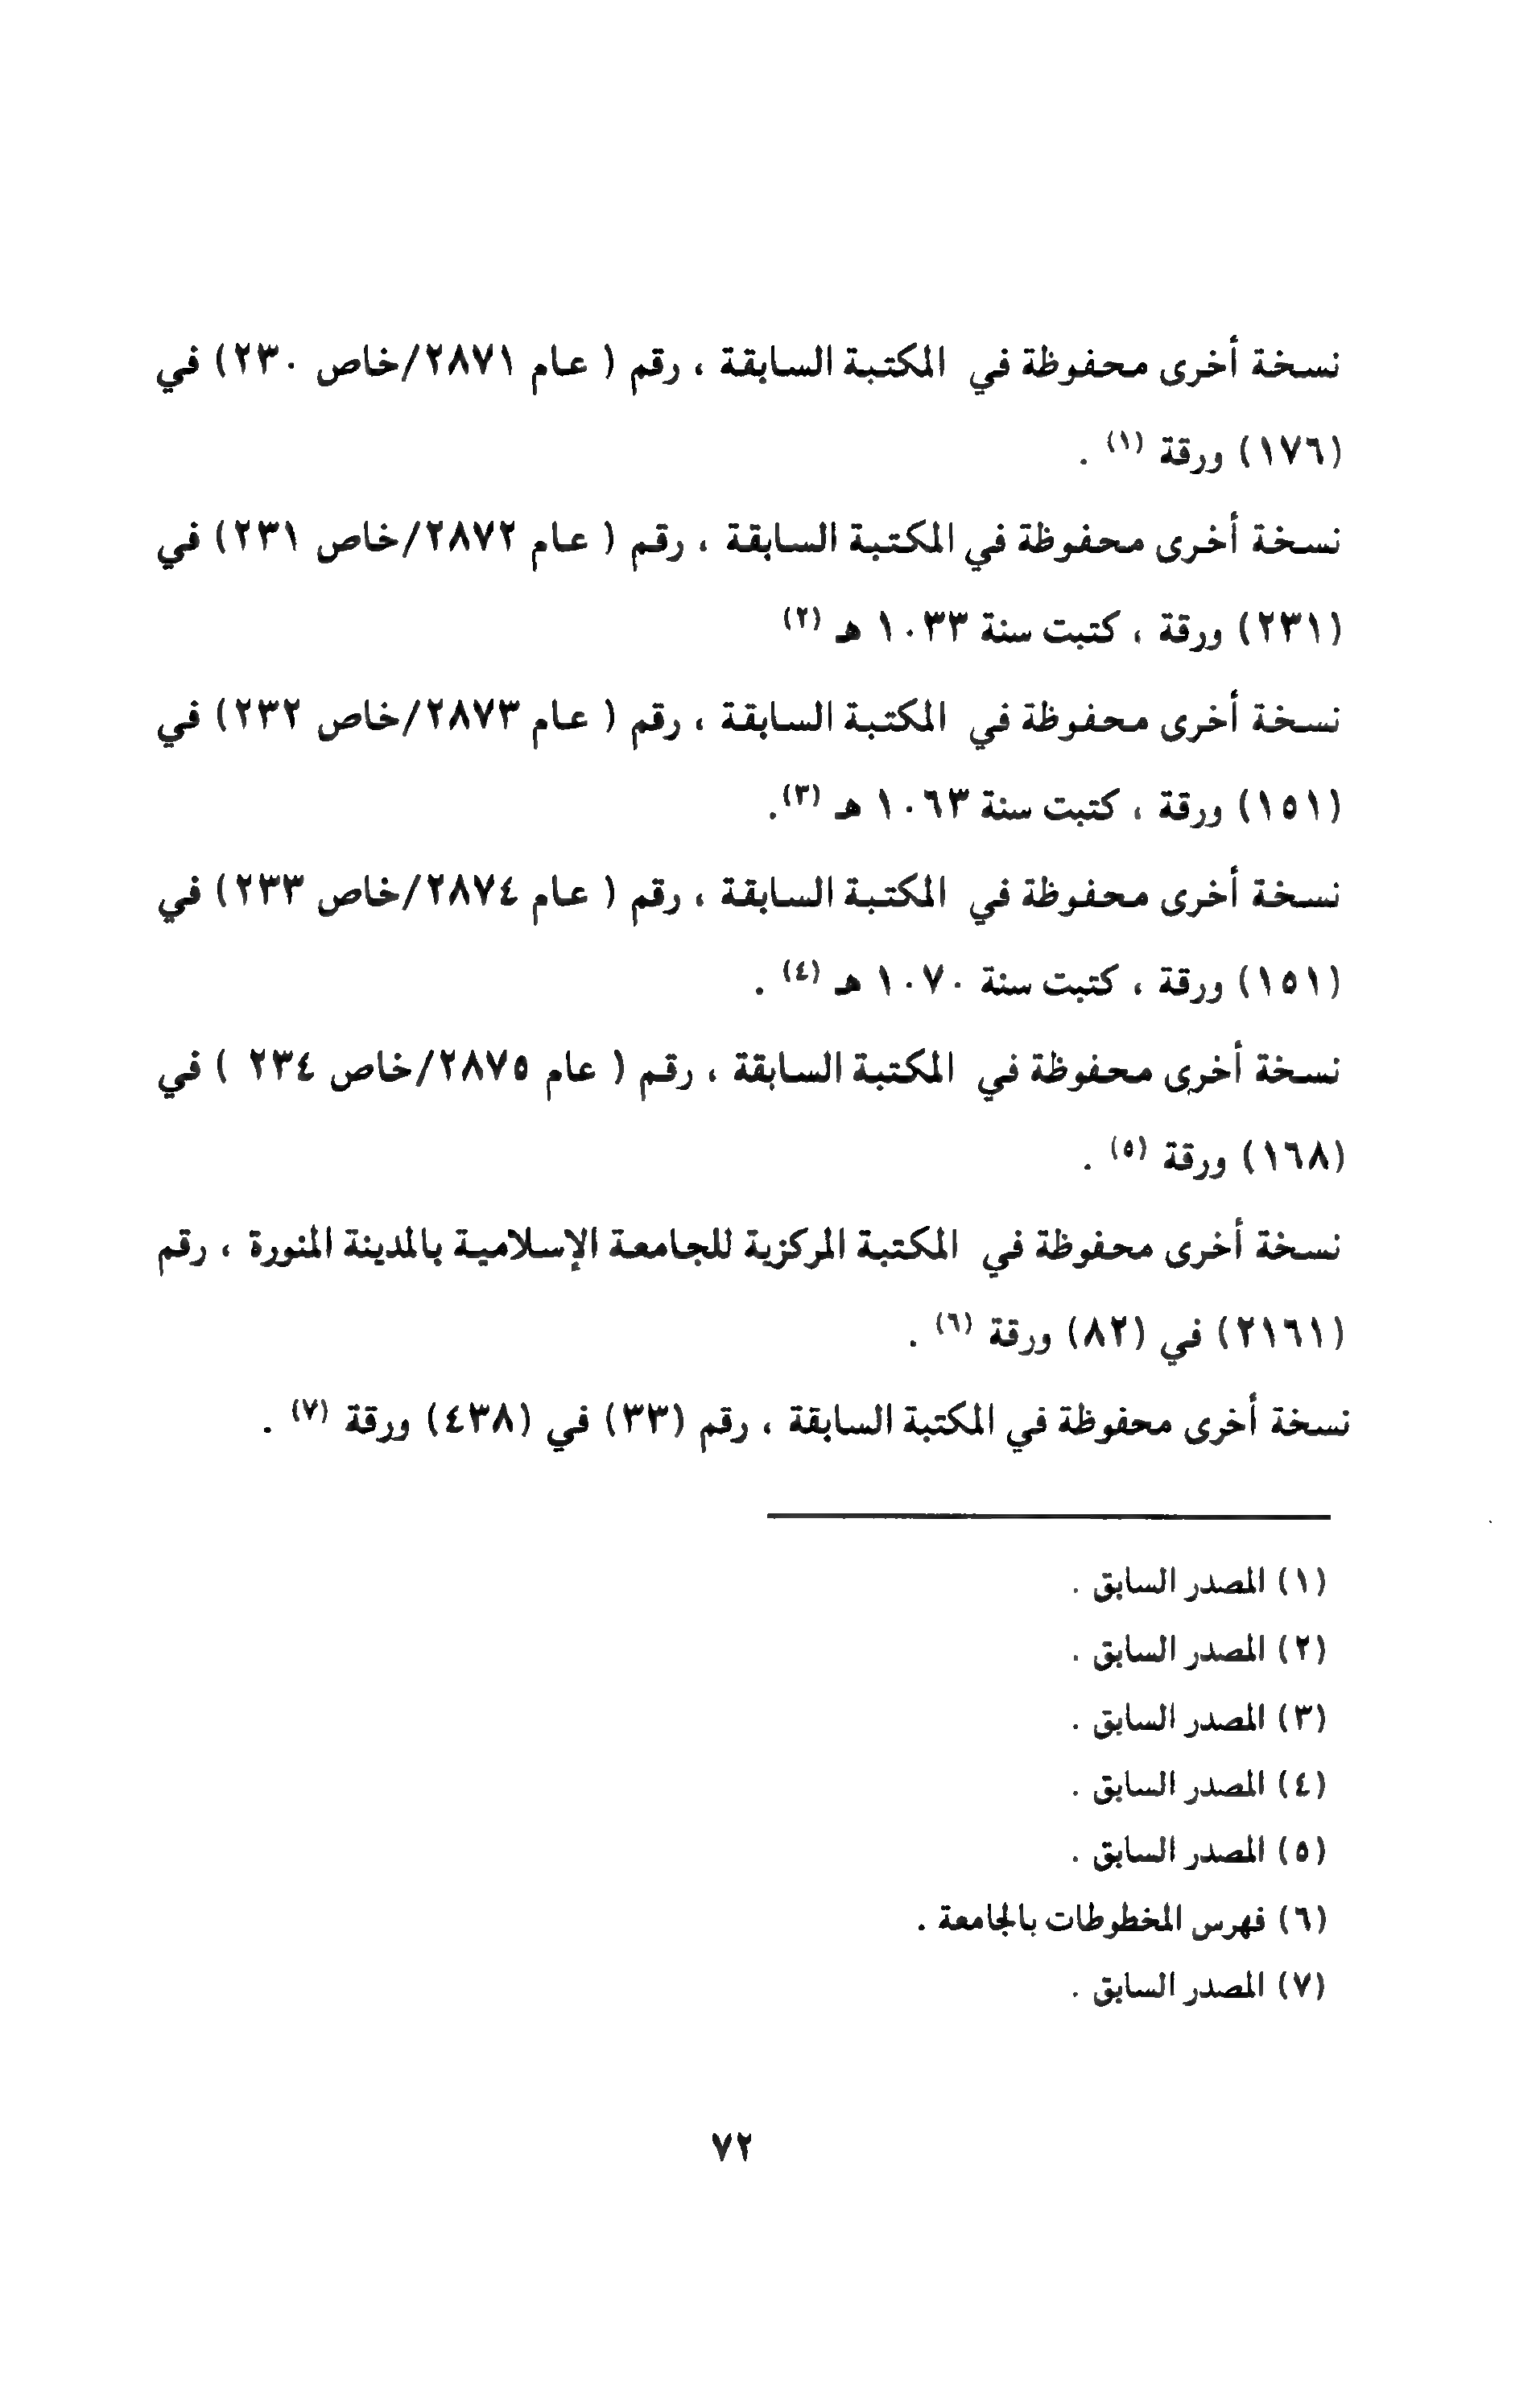 نسخة أخرى محفوظة في المكتبة السابقة ، رقم ( عام ٢٨٧١/خاص ٢٣٠) في
(١٧٦) ورقة (١) .
نسخة أخرى محفوظة في المكتبة السابقة ، رقم ( عام ٢٨٧٢/خاص ٢٣١) في
(٢٣١) ورقة ، كتبت سنة ١٠٣٣ هـ (٢)
نسخة أخرى محفوظة في المكتبة السابقة ، رقم ( عام ٢٨٧٣/خاص ٢٣٢) في
(١٥١) ورقة ، كتبت سنة ١٠٦٣ هـ (٣).
نسخة أخرى محفوظة في المكتبة السابقة ، رقم ( عام ٢٨٧٤/خاص ٢٣٣) في
(١٥١) ورقة ، كتبت سنة ١٠٧٠ هـ (٤) .
نسخة أخرى محفوظة في المكتبة السابقة ، رقم ( عام ٢٨٧٥/خاص ٢٣٤ ) في
(١٦٨) ورقة (٥) .
نسخة أخرى محفوظة في المكتبة المركزية للجامعة الإسلامية بالمدينة المنورة ، رقم
(٢١٦١) في (٨٢) ورقة (٦) .
نسخة أخرى محفوظة في المكتبة السابقة ، رقم (٣٣) في (٤٣٨) ورقة (٧) .
(١) المصدر السابق .
(٢) المصدر السابق .
(٣) المصدر السابق .
(٤) المصدر السابق .
(٥) المصدر السابق .
(٦) فهرس المخطوطات بالجامعة .
(٧) المصدر السابق .
٧٢